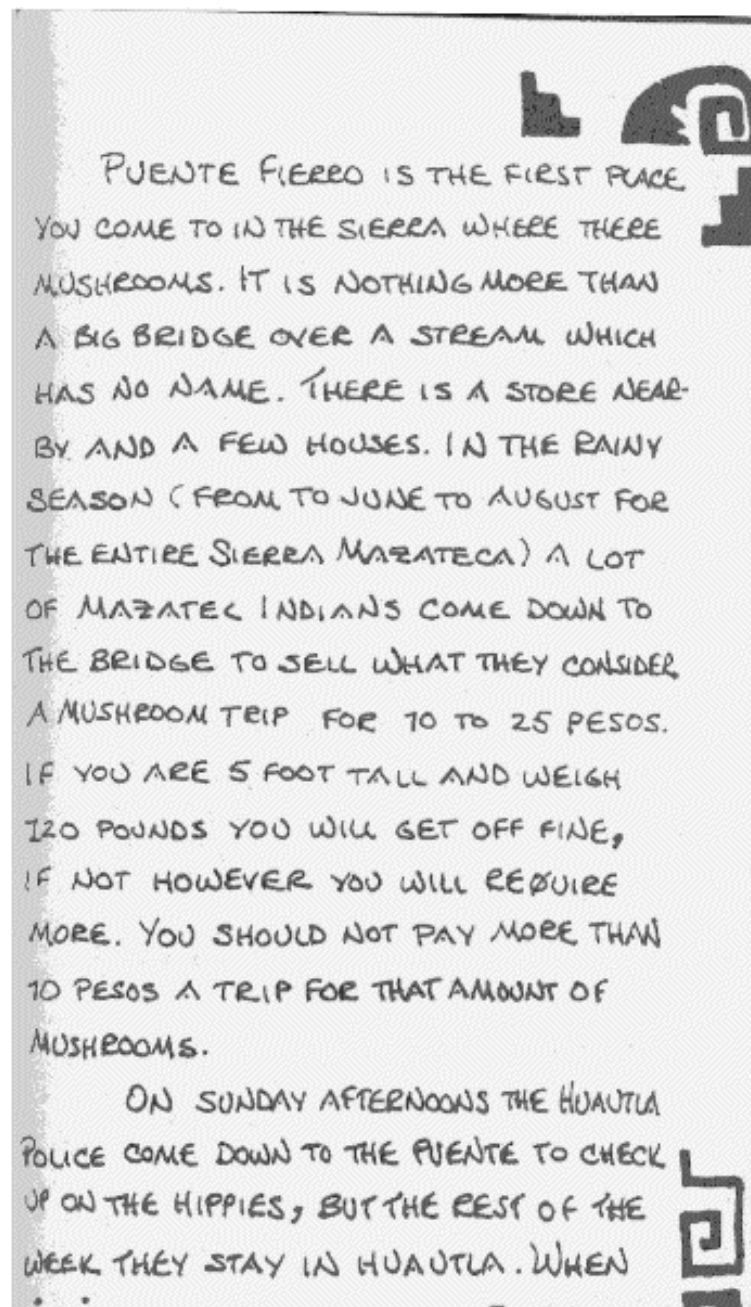 PUENTE FIERRO IS THE FIRST PLACE
YOU COME TO IN THE SIERRA WHERE THERE
MUSHROOMS. IT IS NOTHING MORE THAN
A BIG BRIDGE OVER A STREAM WHICH
HAS NO NAME. THERE IS A STORE NEAR-
BY AND A FEW HOUSES. IN THE RAINY
SEASON (FROM TO JUNE TO AUGUST FOR
THE ENTIRE SIERRA MAZATECA) A LOT
OF MAZATEC INDIANS COME DOWN TO
THE BRIDGE TO SELL WHAT THEY CONSIDER
A MUSHROOM TRIP FOR 10 TO 25 PESOS.
IF YOU ARE 5 FOOT TALL AND WEIGH
120 POUNDS YOU WILL GET OFF FINE,
IF NOT HOWEVER YOU WILL REQUIRE
MORE. YOU SHOULD NOT PAY MORE THAN
10 PESOS A TRIP FOR THAT AMOUNT OF
MUSHROOMS.
ON SUNDAY AFTERNOONS THE HUAUTLA
POLICE COME DOWN TO THE PUENTE TO CHECK
UP ON THE HIPPIES, BUT THE REST OF THE
WEEK THEY STAY IN HUAUTLA. WHEN